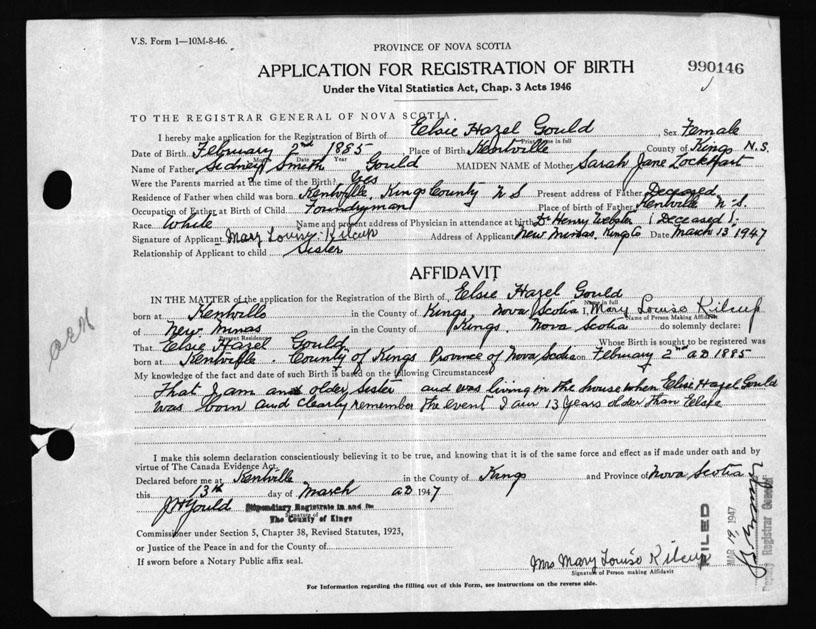 V.S. Form 1—10M-8-46.
PROVINCE OF NOVA SCOTIA
APPLICATION FOR REGISTRATION OF BIRTH
990146
Under the Vital Statistics Act, Chap. 3 Acts 1946
TO THE REGISTRAR GENERAL OF NOVA SCOTIA.
I hereby make application for the Registration of Birth of Elsie Hazel Gould, Sex Female
Print name in full
Date of Birth February 2nd 1885 Place of Birth Kentville County of Kings N.S.
Month Date Year
Name of Father Sidney Smith Gould MAIDEN NAME of Mother Sarah Jane Lockhart
Were the Parents married at the time of the Birth? Yes
Residence of Father when child was born Kentville, Kings County N S Present address of Father Deceased
Occupation of Father at Birth of Child Foundryman Place of birth of Father Kentville N.S.
Race White Name and present address of Physician in attendance at birth Dr Henry Webster (Deceased)
Signature of Applicant Mary Louise Kilcup Address of Applicant New Minas, Kings Co Date March 13 1947
Relationship of Applicant to child Sister
AFFIDAVIT
IN THE MATTER of the application for the Registration of the Birth of Elsie Hazel Gould
Name in full
born at Kentville in the County of Kings, Nova Scotia I, Mary Louise Kilcup
Name of Person Making Affidavit
of New Minas in the County of Kings, Nova Scotia do solemnly declare:
Present Residence
That Elsie Hazel Gould Whose Birth is sought to be registered was
born at Kentville, County of Kings Province of Nova Scotia on February 2nd AD 1885
My knowledge of the fact and date of such Birth is based on the following Circumstances
That I am an older sister and was living in the house when Elsie Hazel Gould
was born and clearly remember the event I am 13 years older than Elsie
I make this solemn declaration conscientiously believing it to be true, and knowing that it is of the same force and effect as if made under oath and by
virtue of The Canada Evidence Act.
Declared before me at Kentville in the County of Kings and Province of Nova Scotia
this 13th day of March AD 1947
Gould Stipendiary Magistrate in and for
Signature of
The County of Kings
Commissioner under Section 5, Chapter 38, Revised Statutes, 1923,
or Justice of the Peace in and for the County of
If sworn before a Notary Public affix seal.
Mrs Mary Louise Kilcup
Signature of Person making Affidavit
FILED
MAR 19 1947
Deputy Registrar General
For Information regarding the filling out of this Form, see instructions on the reverse side.